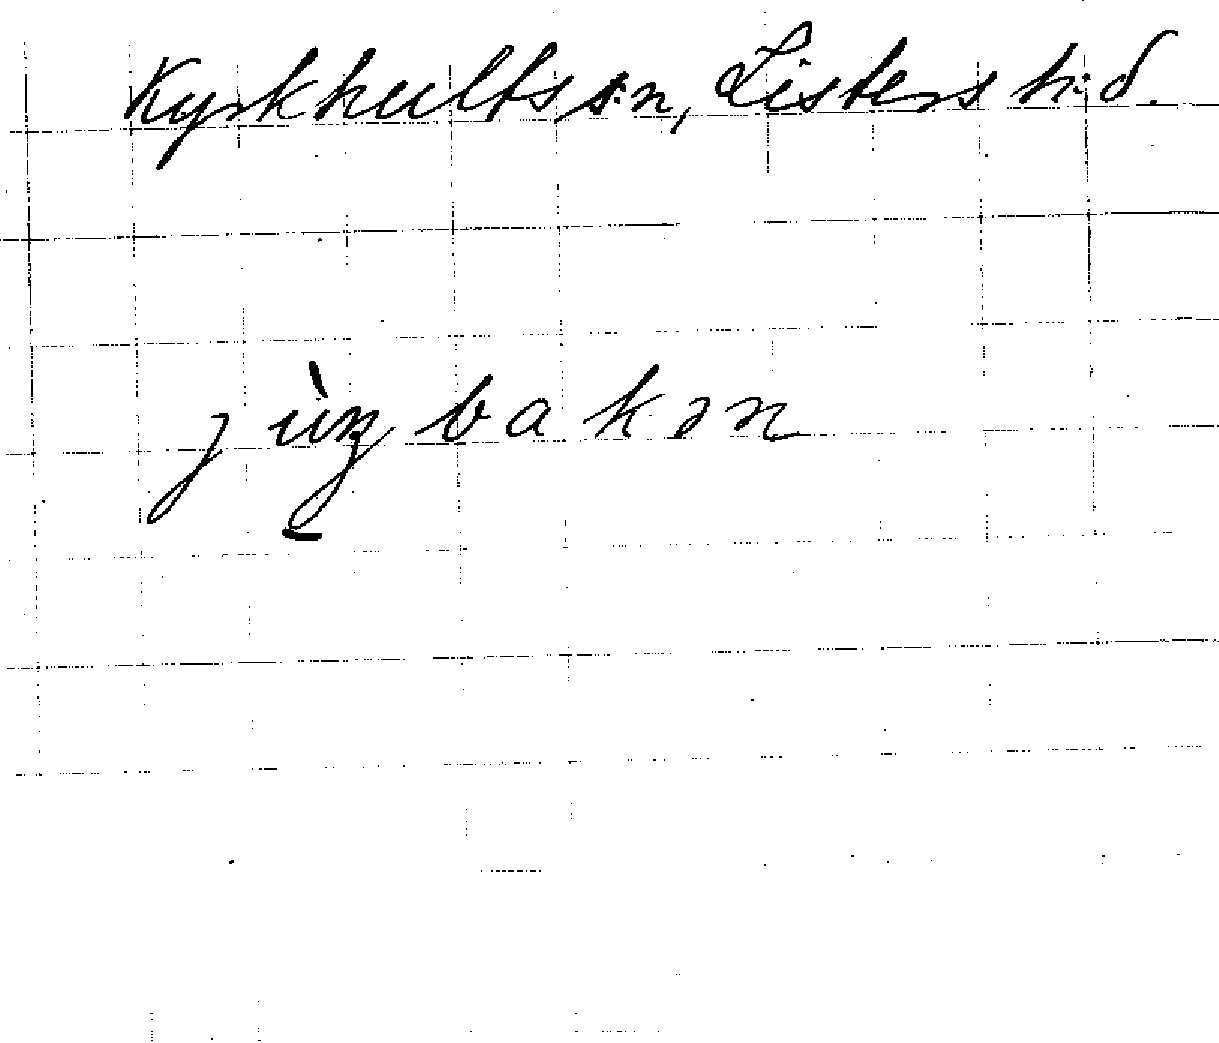 Kyrkhults s:n, Listers h:d.
jùŋbakən